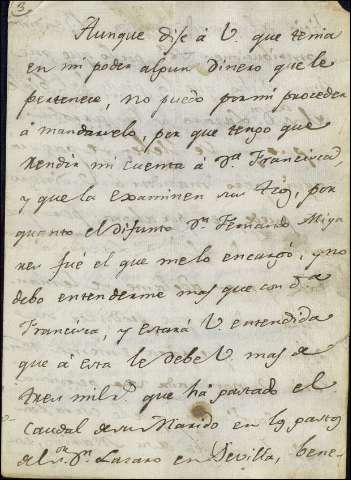 3
Aunque dije á V. que tenia
en mi poder algun dinero que le
pertenece, no puedo por mi proceder
á mandarselo, por que tengo que
rendir mi cuenta á Dª Francisca,
y que la examinen sus por
quanto el difunto Dn Fernando Miya
res fué el que me lo encargó, y no
debo entenderme mas que con Dª
Francisca, y estará V. entendida
que á esta le debe V. mas de
tres mil que há gastado el
Caudal de su Marido en los gastos
del Sor. Dn Lazaro en Sevilla, bene-